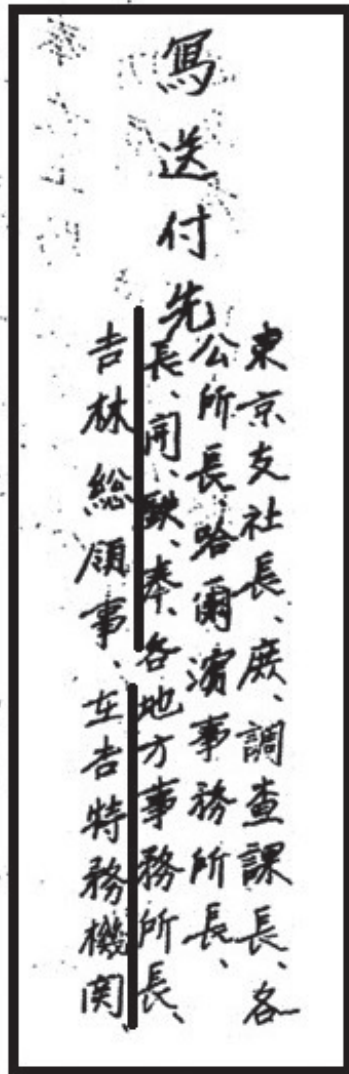 寫送付先
東京支社長、庶、調査課長、各
公所長、哈爾濱事務所長、
長、開、鉄、奉、各地方事務所長、
吉林総領事、在吉特務機関